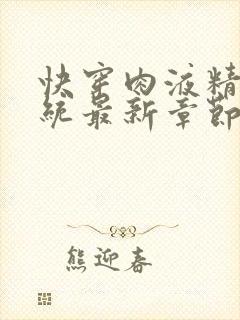 快穿肉液精
统最新章節
熊迎春